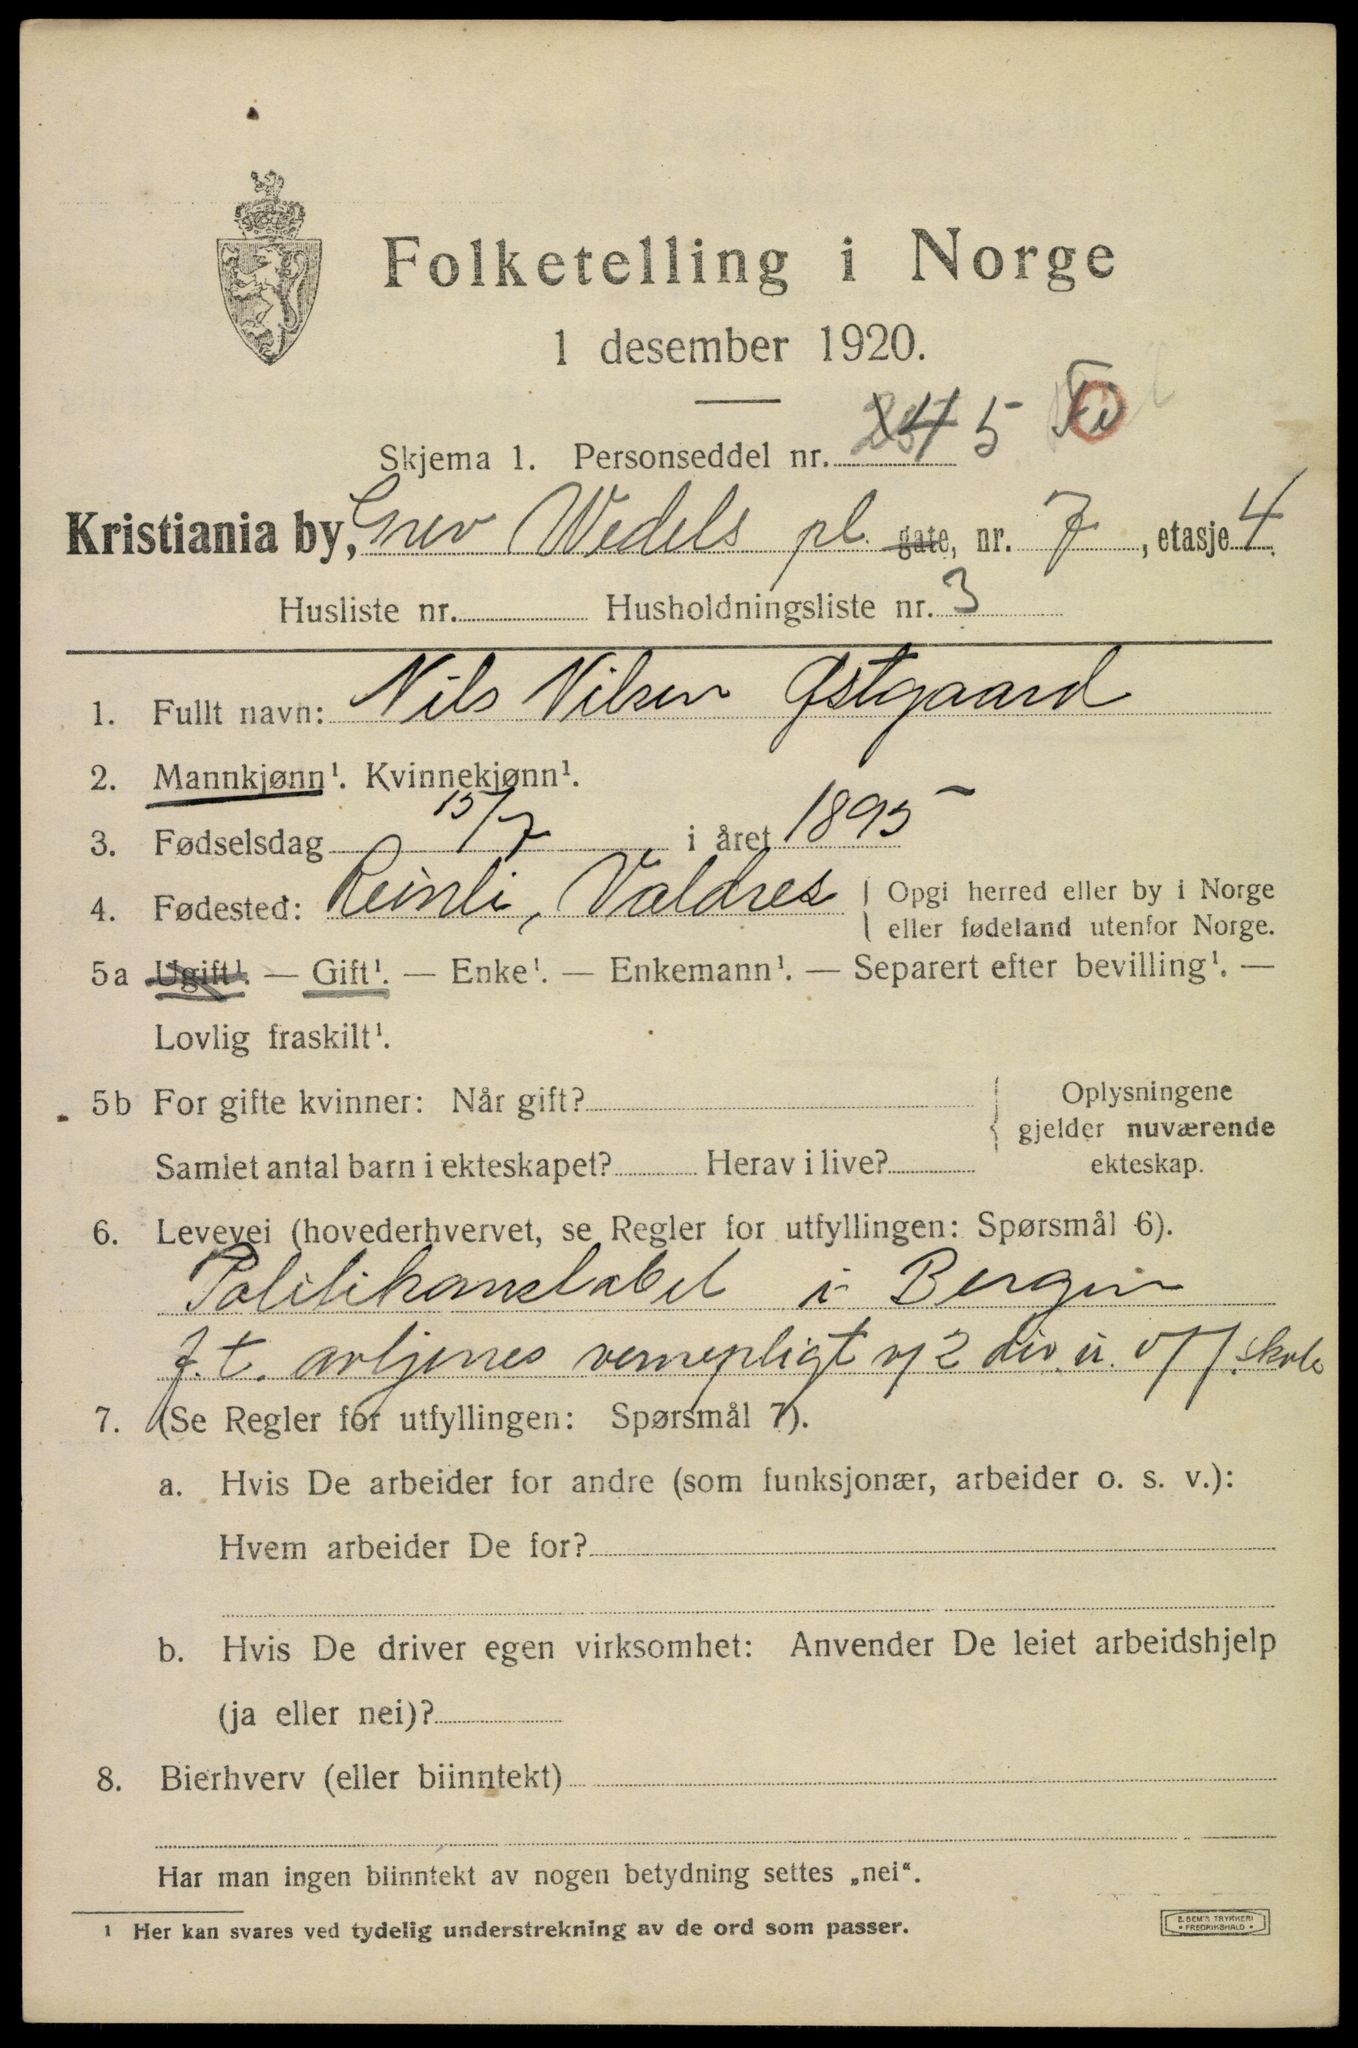 Folketelling i Norge
1 desember 1920.
Skjema 1. Personseddel nr. 5
Kristiania by, Grev Wedels pl. gate, nr. 7, etasje 4.
Husliste nr. Husholdningsliste nr. 3
1. Fullt navn: Nils Nilsen Østgaard
2. Mannkjønn¹. Kvinnekjønn¹.
3. Fødselsdag 15/7 i året 1895
4. Fødested: Reinli, Valdres { Opgi herred eller by i Norge
eller fødeland utenfor Norge.
5a Ugift¹. — Gift¹. — Enke¹. — Enkemann¹. — Separert efter bevilling¹. —
Lovlig fraskilt¹.
5b For gifte kvinner: Når gift?
Samlet antal barn i ekteskapet? Herav i live?
{ Oplysningene
gjelder nuværende
ekteskap.
6. Levevei (hovederhvervet, se Regler for utfyllingen: Spørsmål 6).
Politikonstabel i Bergen
f. t. avtjenes vernepligt v/ 2 div. u. off. skole
7. (Se Regler for utfyllingen: Spørsmål 7).
a. Hvis De arbeider for andre (som funksjonær, arbeider o. s. v.):
Hvem arbeider De for?
b. Hvis De driver egen virksomhet: Anvender De leiet arbeidshjelp
(ja eller nei)?
8. Bierhverv (eller biinntekt)
Har man ingen biinntekt av nogen betydning settes „nei“.
¹ Her kan svares ved tydelig understrekning av de ord som passer.
E. SEM'S TRYKKERI
• FREDRIKSHALD •